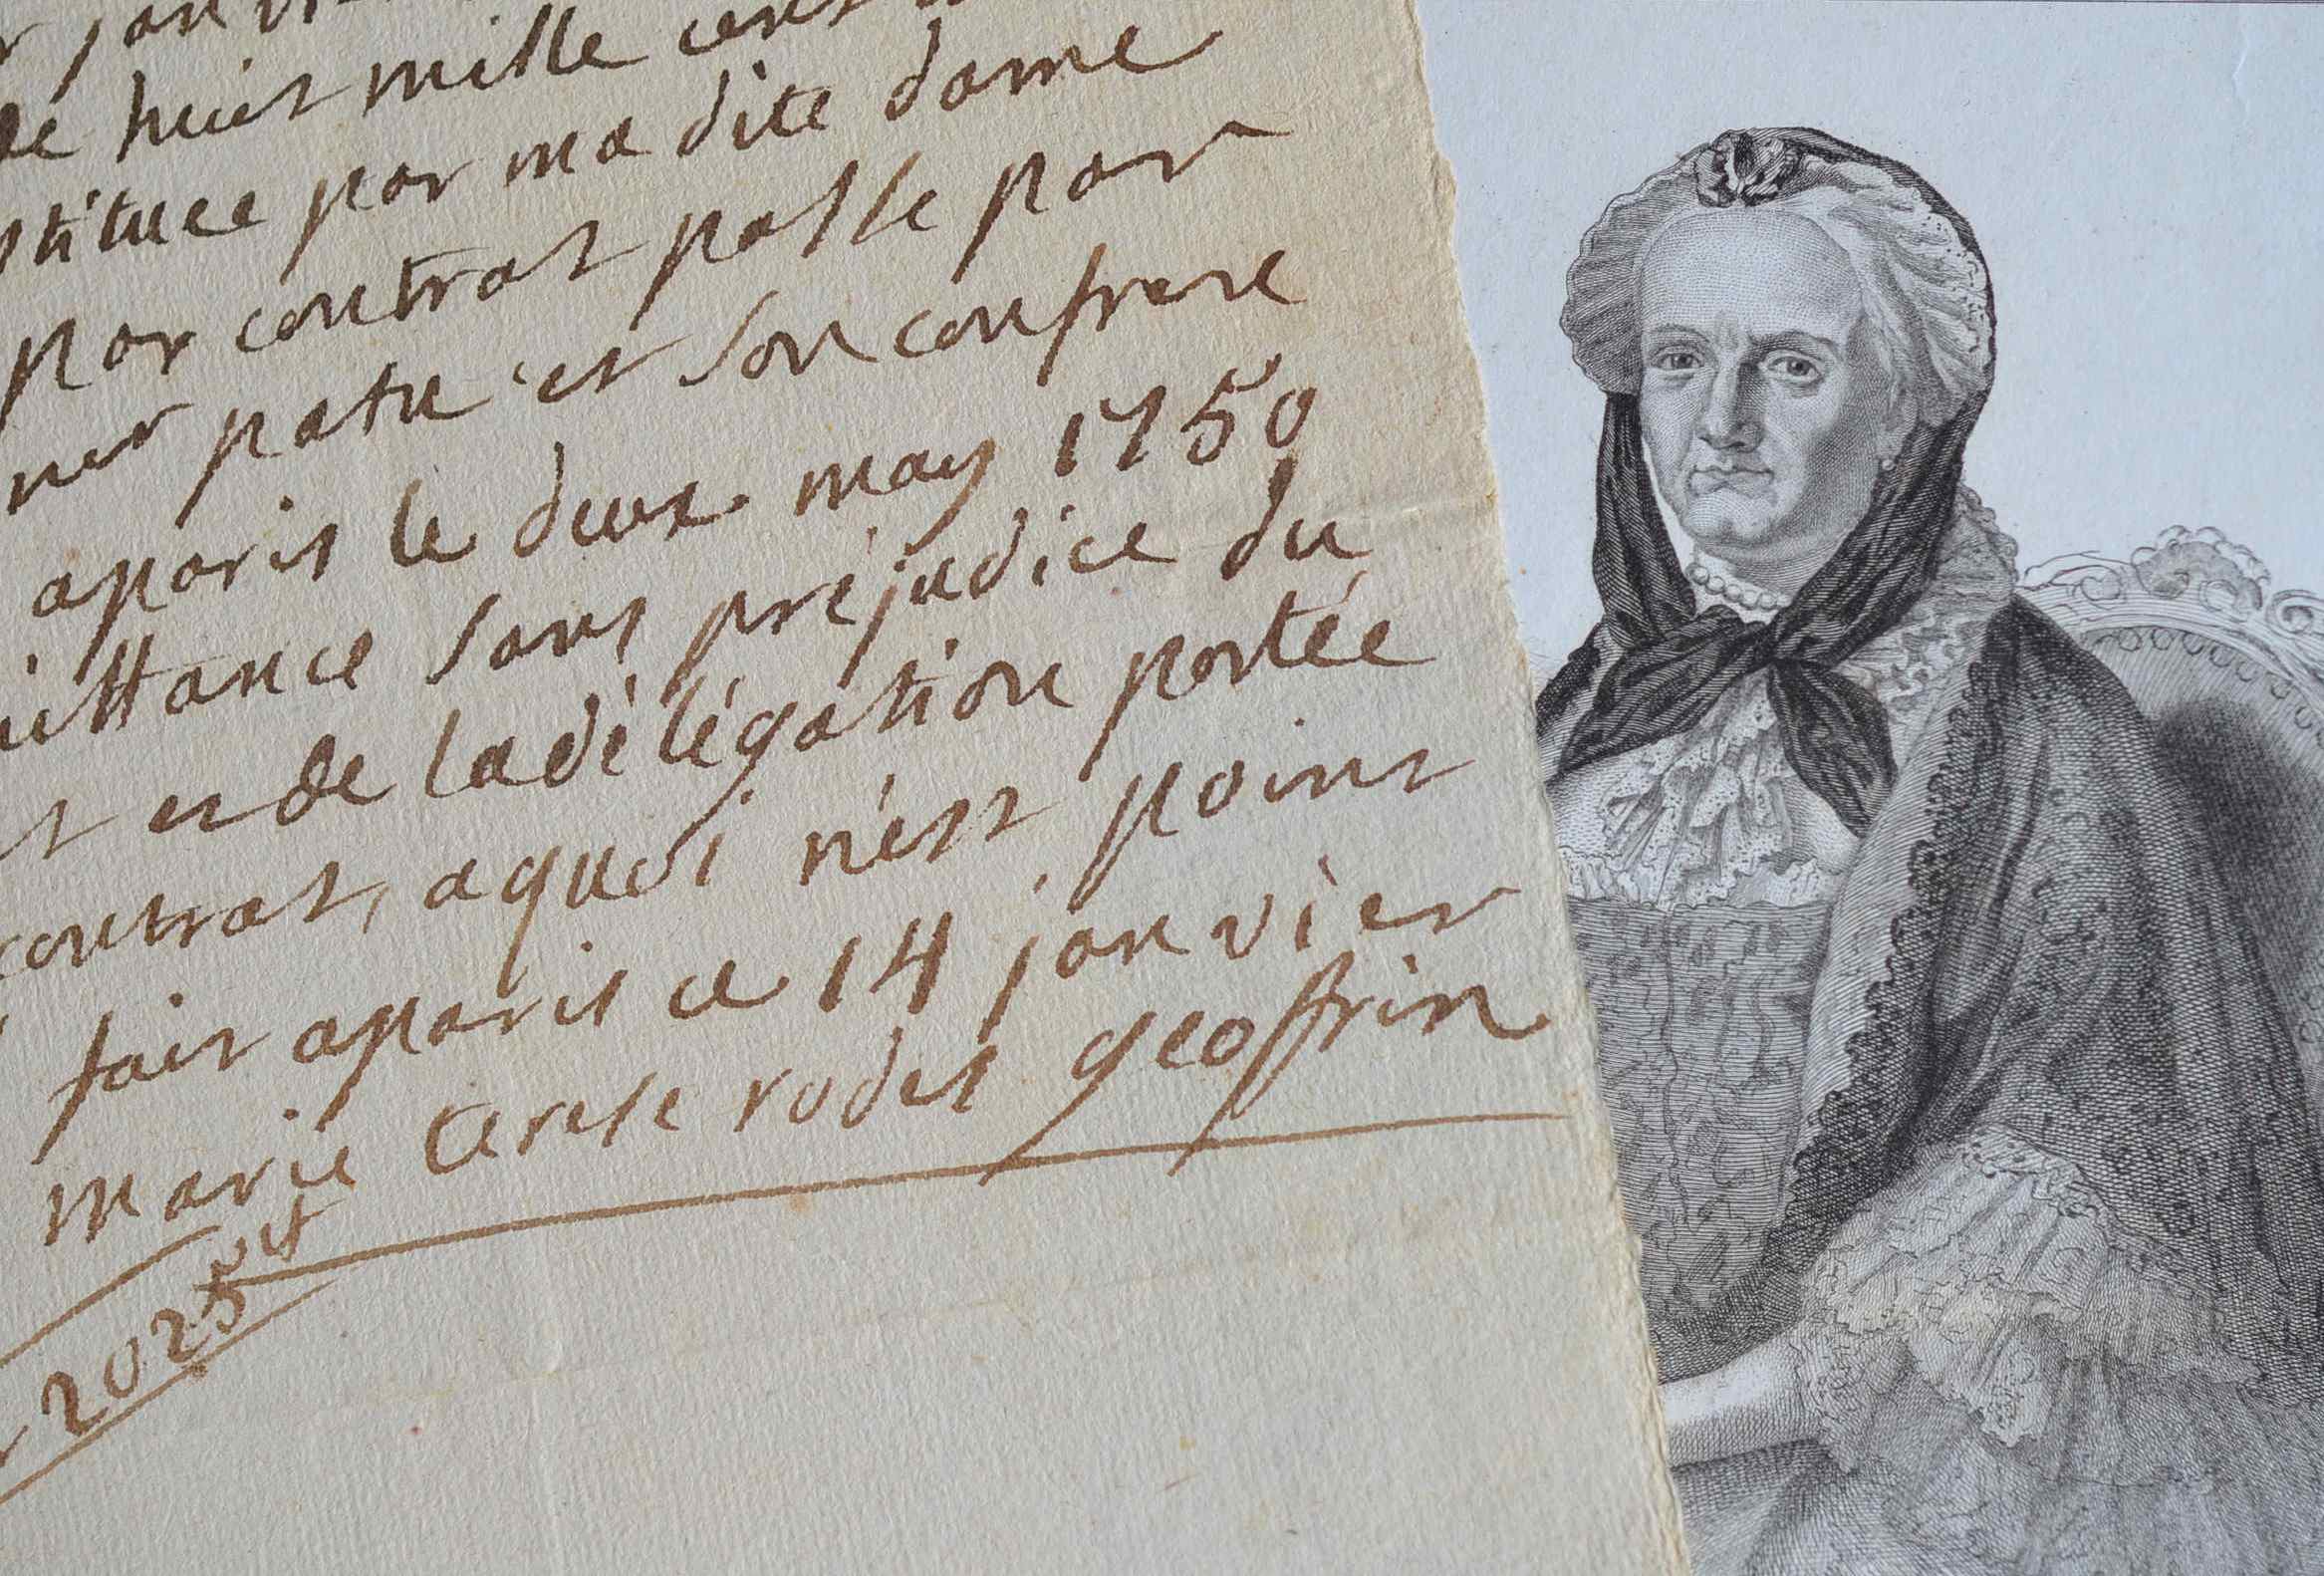 janvi
de huit mille cent
stituee par ma dite dame
par contrat passe par
ner patu et son confrere
aparis le deux may 1750
uittance sans préjudice du
t et de la délégation portée
contrat, aquoi n'est point
fait aparis ce 14 janvier
marie terese rodet geoffrin
2025